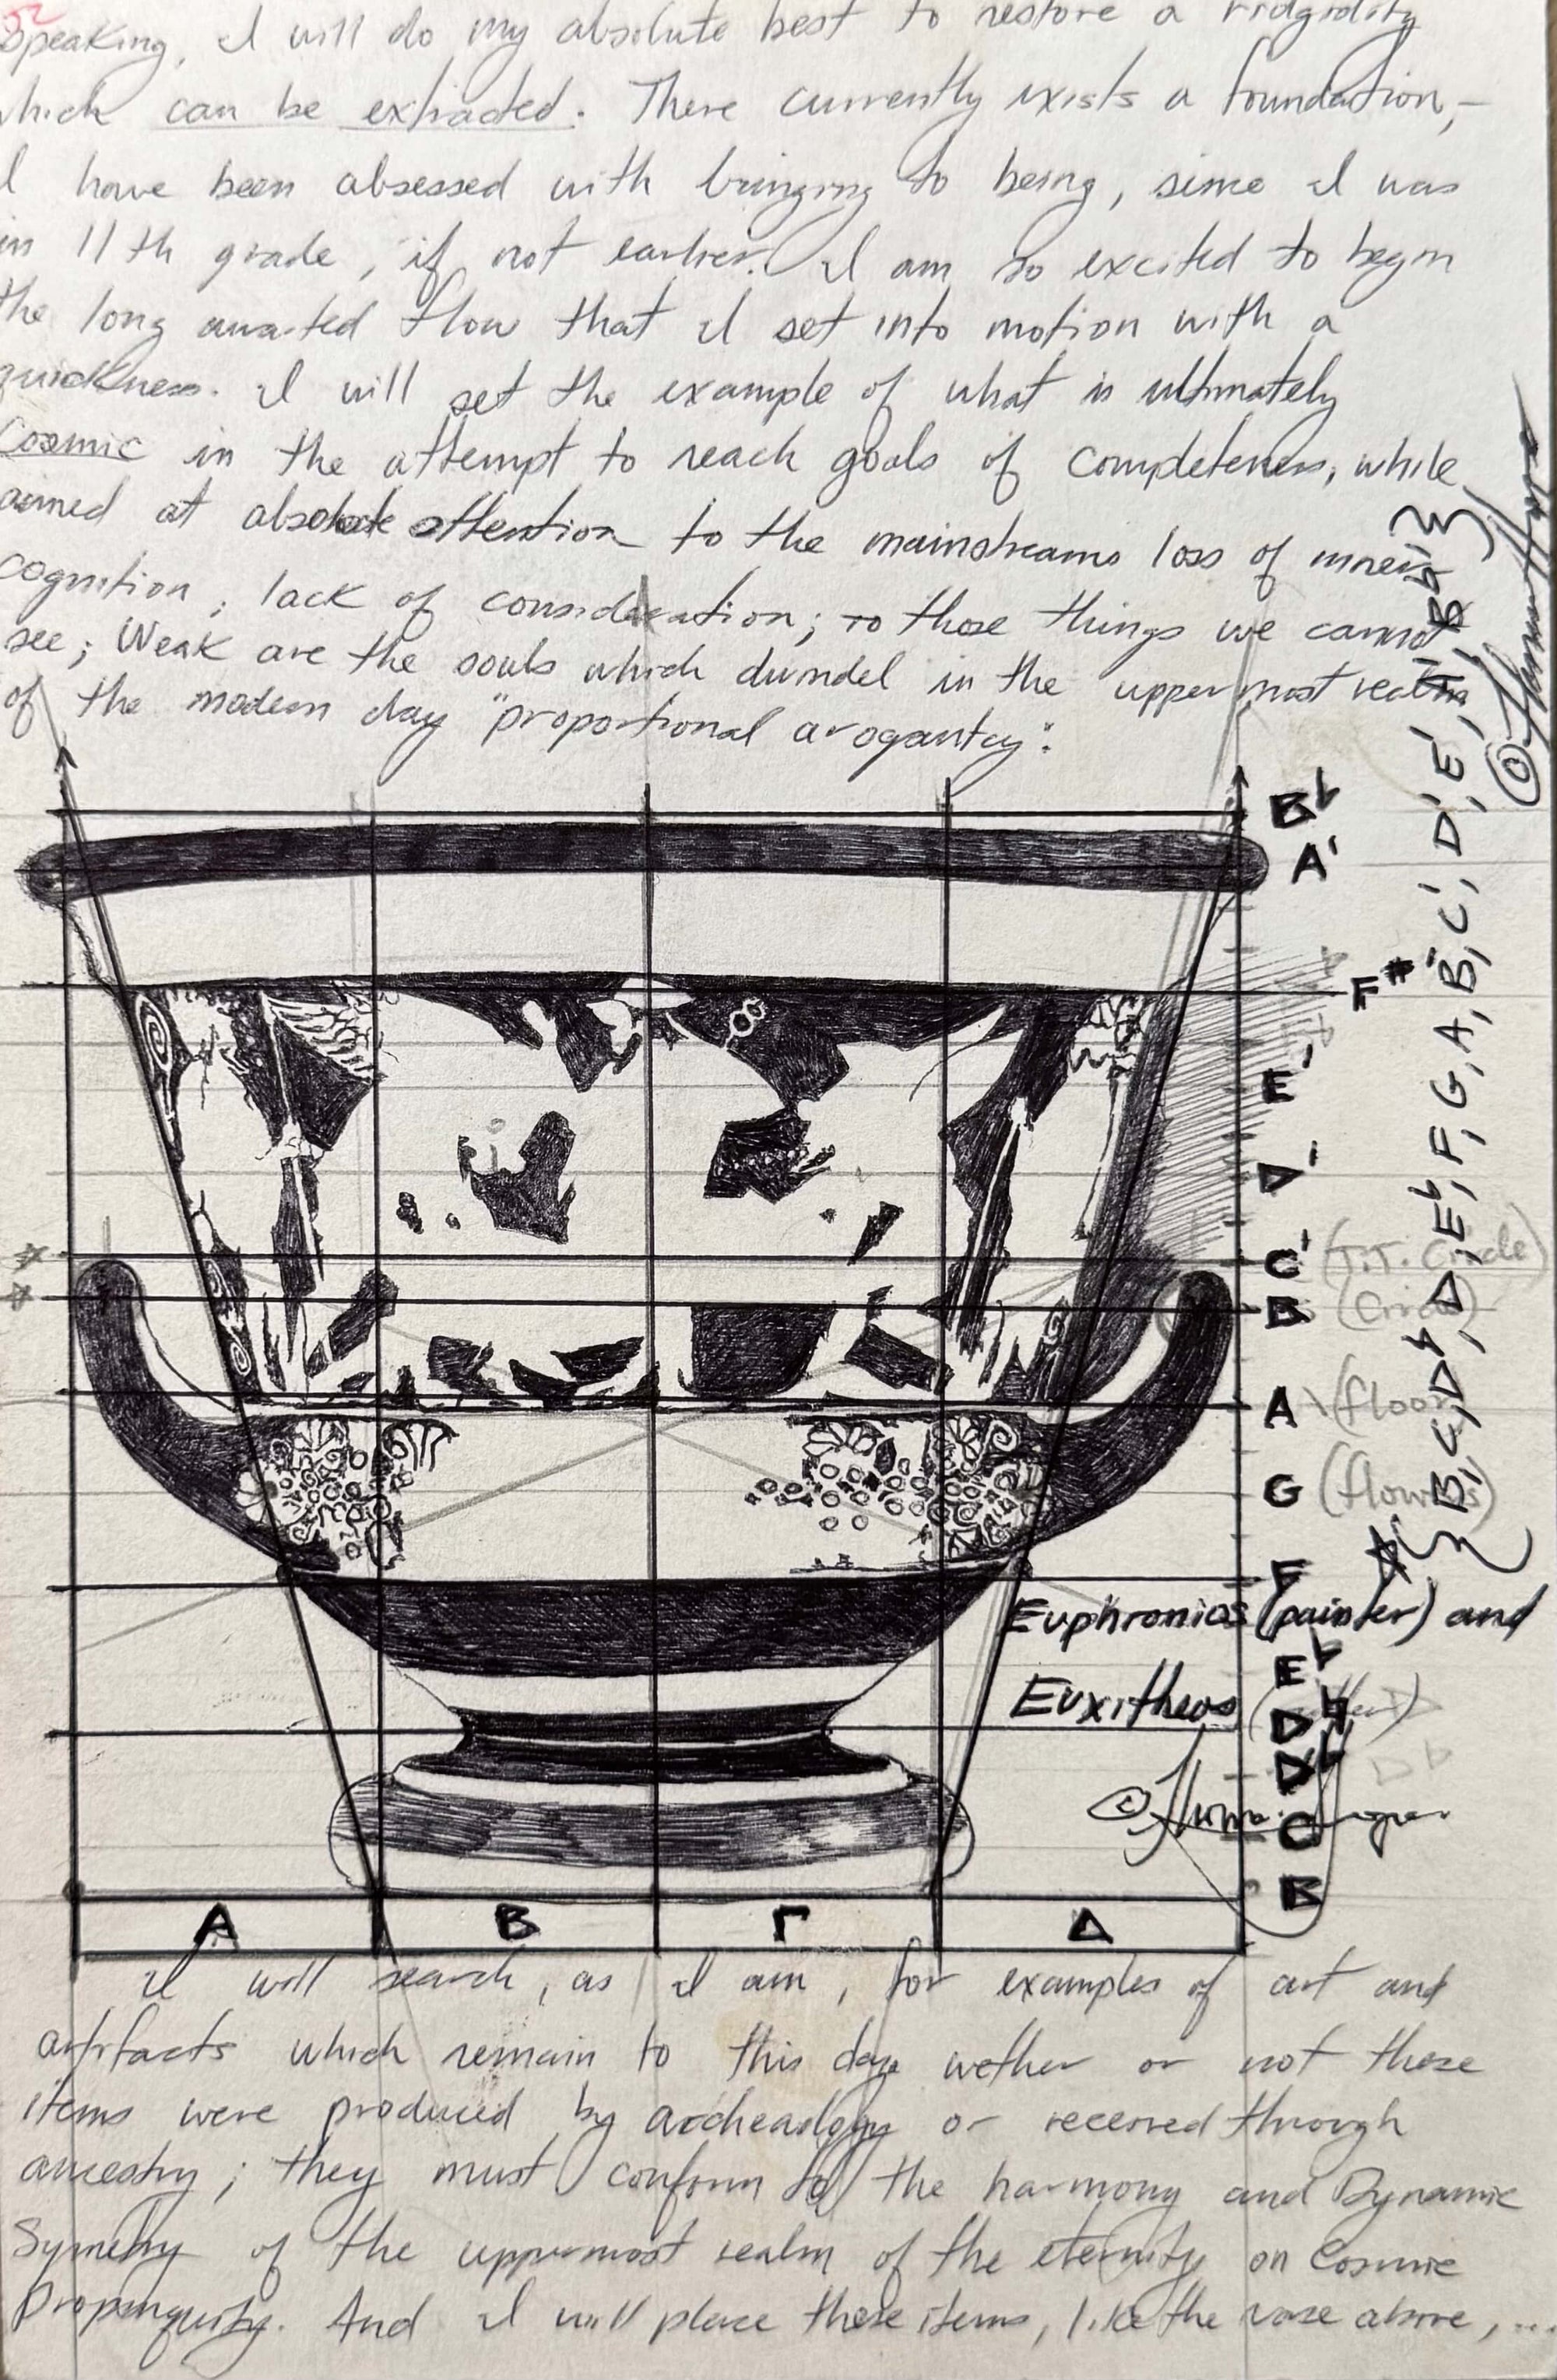 52
speaking, I will do my absolute best to restore a ridgidity
which can be extracted. There currently exists a foundation,-
I have been absessed with bringing to being, since I was
in 11th grade, if not earlier. I am so excited to begin
the long awaited flow that I set into motion with a
quickness. I will set the example of what is ultimately
Cosmic in the attempt to reach goals of completeness, while
aimed at absolute attention to the mainstreams loss of inner
cognition, lack of consideration; to those things we cannot
see; Weak are the souls which dwindel in the uppermost realm
of the modern day "proportional arogantcy".
B♭
A'
F#
E'
D'
C' (T.T. Circle)
B (Circle)
A (floor)
G (flowers)
F
Euphronios (painter) and
E♭
Euxitheos
D♮
D♭
C
B
{B, C, D♭, D, E♭, F, G, A, B, C', D', E',
A B Γ Δ
I will search, as I am, for examples of art and
artifacts which remain to this day wether or not these
items were produced by archeaology or received through
ancestry; they must conform to the harmony and Dynamic
Symetry of the uppermost realm of the eternity on Cosmic
Propinquity. And I will place these items, like the vase above, ...